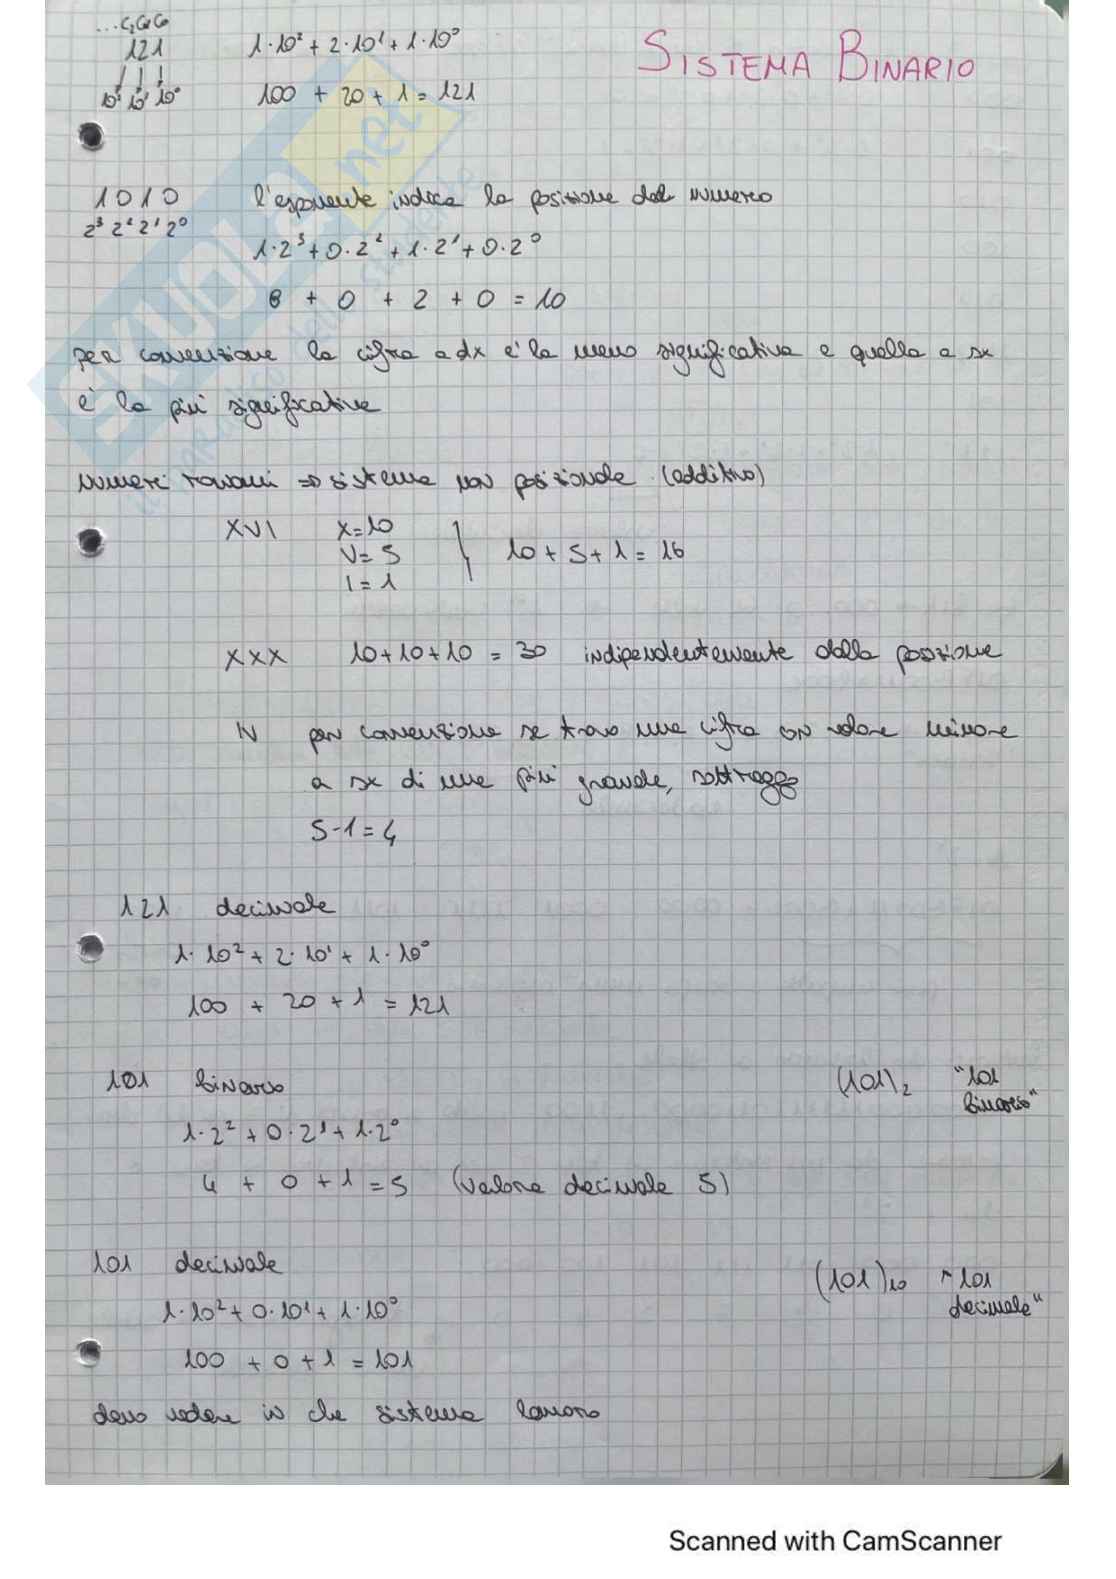 ... C₂ C₁ C₀
121 1·10² + 2·10¹ + 1·10⁰
SISTEMA BINARIO
10² 10¹ 10⁰ 100 + 20 + 1 = 121
1010 l'esponente indica la posizione del numero
2³ 2² 2¹ 2⁰
1·2³ + 0·2² + 1·2¹ + 0·2⁰
8 + 0 + 2 + 0 = 10
per convenzione la cifra a dx è la meno significativa e quella a sx
è la più significativa
numeri romani => sistema non posizionale (additivo)
XVI X=10
V=5 10+5+1=16
I=1
XXX 10+10+10 = 30 indipendentemente dalla posizione
IV per convenzione se trovo una cifra con valore minore
a sx di una più grande, sottraggo
5-1=4
121 decimale
1·10² + 2·10¹ + 1·10⁰
100 + 20 + 1 = 121
101 binario (101)₂ "101
binario"
1·2² + 0·2¹ + 1·2⁰
4 + 0 + 1 = 5 (valore decimale 5)
101 decimale (101)₁₀ "101
decimale"
1·10² + 0·10¹ + 1·10⁰
100 + 0 + 1 = 101
devo vedere in che sistema lavoro
SKUOLA.net
Scanned with CamScanner